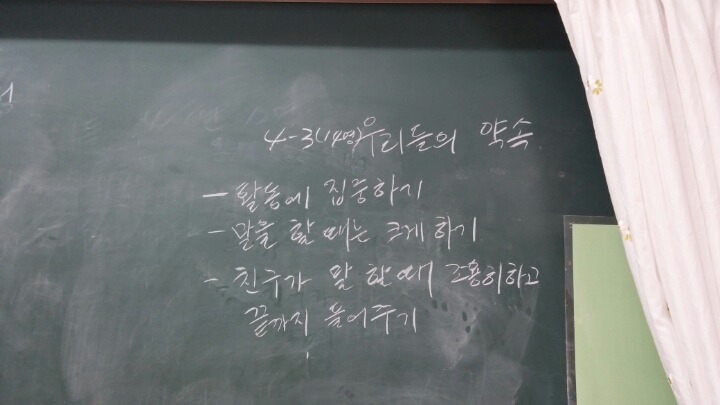 4-3(14명)우리들의 약속
- 활동에 집중하기
- 말을 할 때는 크게 하기
- 친구가 말 할 때 조용히하고
끝까지 들어주기